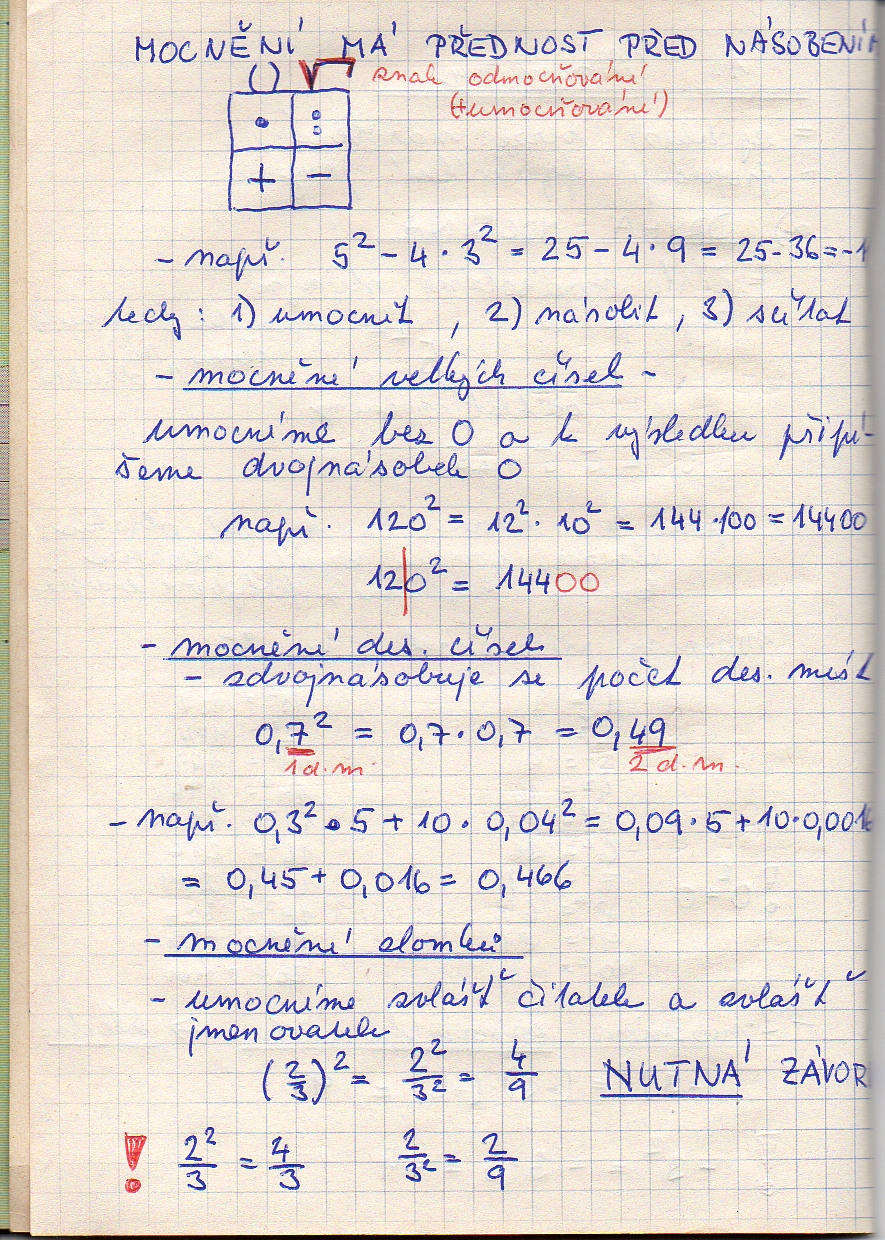 MOCNĚNÍ MÁ PŘEDNOST PŘED NÁSOBENÍM
() √ znak odmocňování
(+umocňování)
· :
+ −
- např. 5² - 4 · 3² = 25 - 4 · 9 = 25 - 36 = -1
tedy : 1) umocnit , 2) násobit , 3) sčítat
- mocnění velkých čísel -
umocníme bez 0 a k výsledku připí-
šeme dvojnásobek 0
např. 120² = 12² · 10² = 144 · 100 = 14400
12|0² = 14400
- mocnění des. čísel
- zdvojnásobuje se počet des. míst
0,7² = 0,7 · 0,7 = 0,49
1 d. m. 2 d. m.
- např. 0,3² · 5 + 10 · 0,04² = 0,09 · 5 + 10 · 0,0016
= 0,45 + 0,016 = 0,466
- mocnění zlomků
- umocníme zvlášť čitatele a zvlášť
jmenovatele
(2/3)² = 2²/3² = 4/9 NUTNÁ ZÁVOR
! 2²/3 = 4/3 2/3² = 2/9